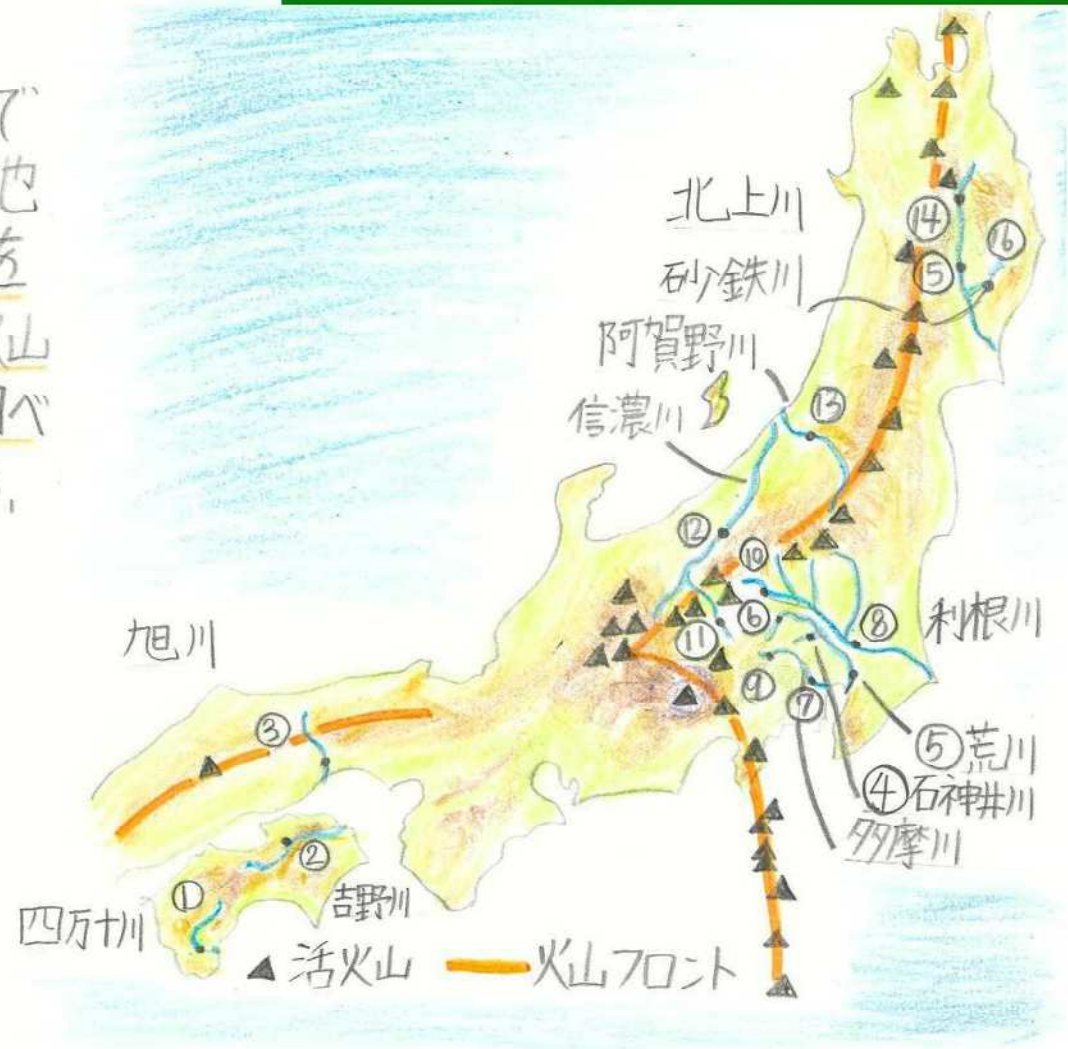 で
地
山
べ
北上川
砂鉄川
阿賀野川
信濃川
⑭
⑯
⑤
⑬
⑫
⑩
⑥
⑧
利根川
⑪
⑨
⑦
旭川
③
⑤荒川
④石神井川
多摩川
②
①
吉野川
四万十川
▲活火山
火山フロント